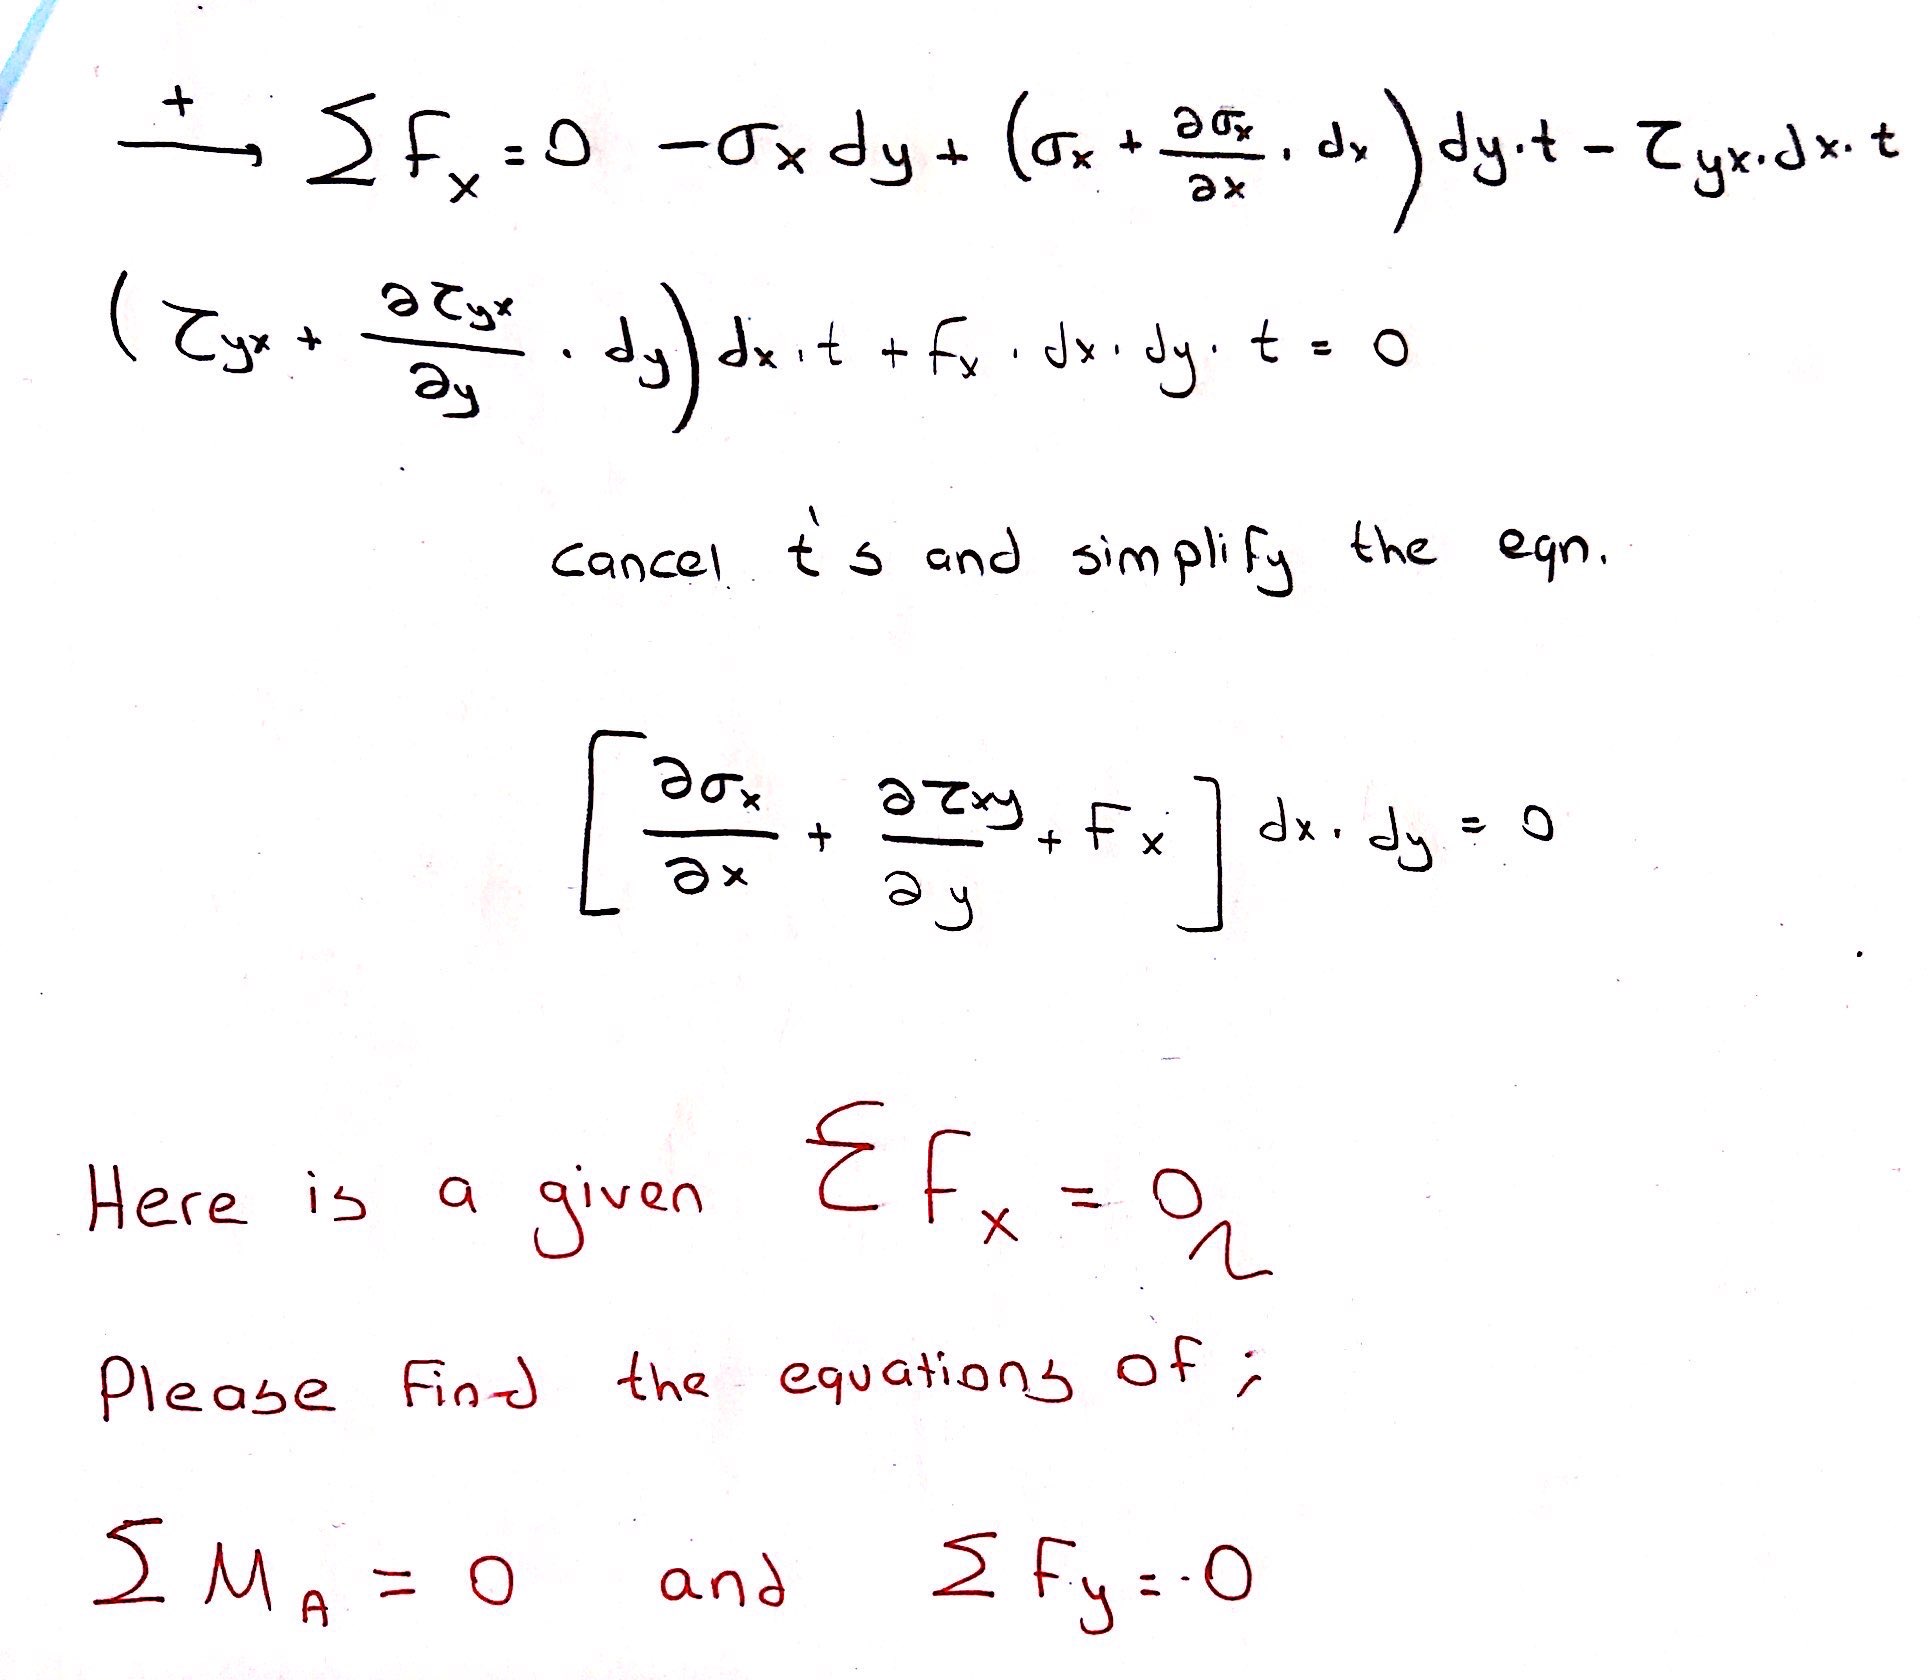 +
→ ΣFx = 0 −σx dy + (σx + ∂σx/∂x · dx) dy·t − τyx·dx·t
(τyx + ∂τyx/∂y · dy) dx·t + Fx · dx · dy · t = 0
cancel t's and simplify the eqn.
[∂σx/∂x + ∂τxy/∂y + Fx] dx · dy = 0
Here is a given ΣFx = 0,
Please Find the equations of ;
ΣMA = 0 and ΣFy = 0